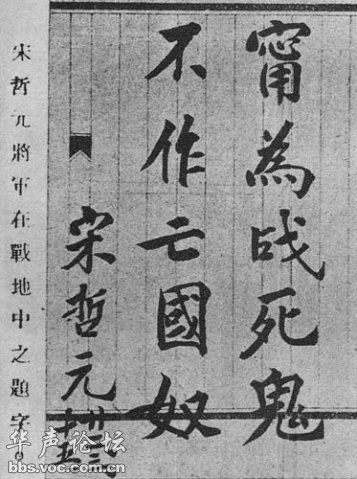 甯為战死鬼
不作亡國奴
宋哲元
宋哲元將軍在戰地中之題字。
华声论坛
bbs.voc.com.cn